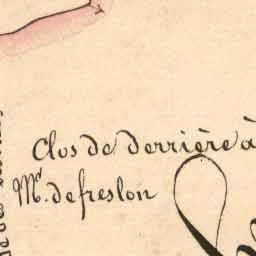 Clos de derrière à
Mr. de freslon